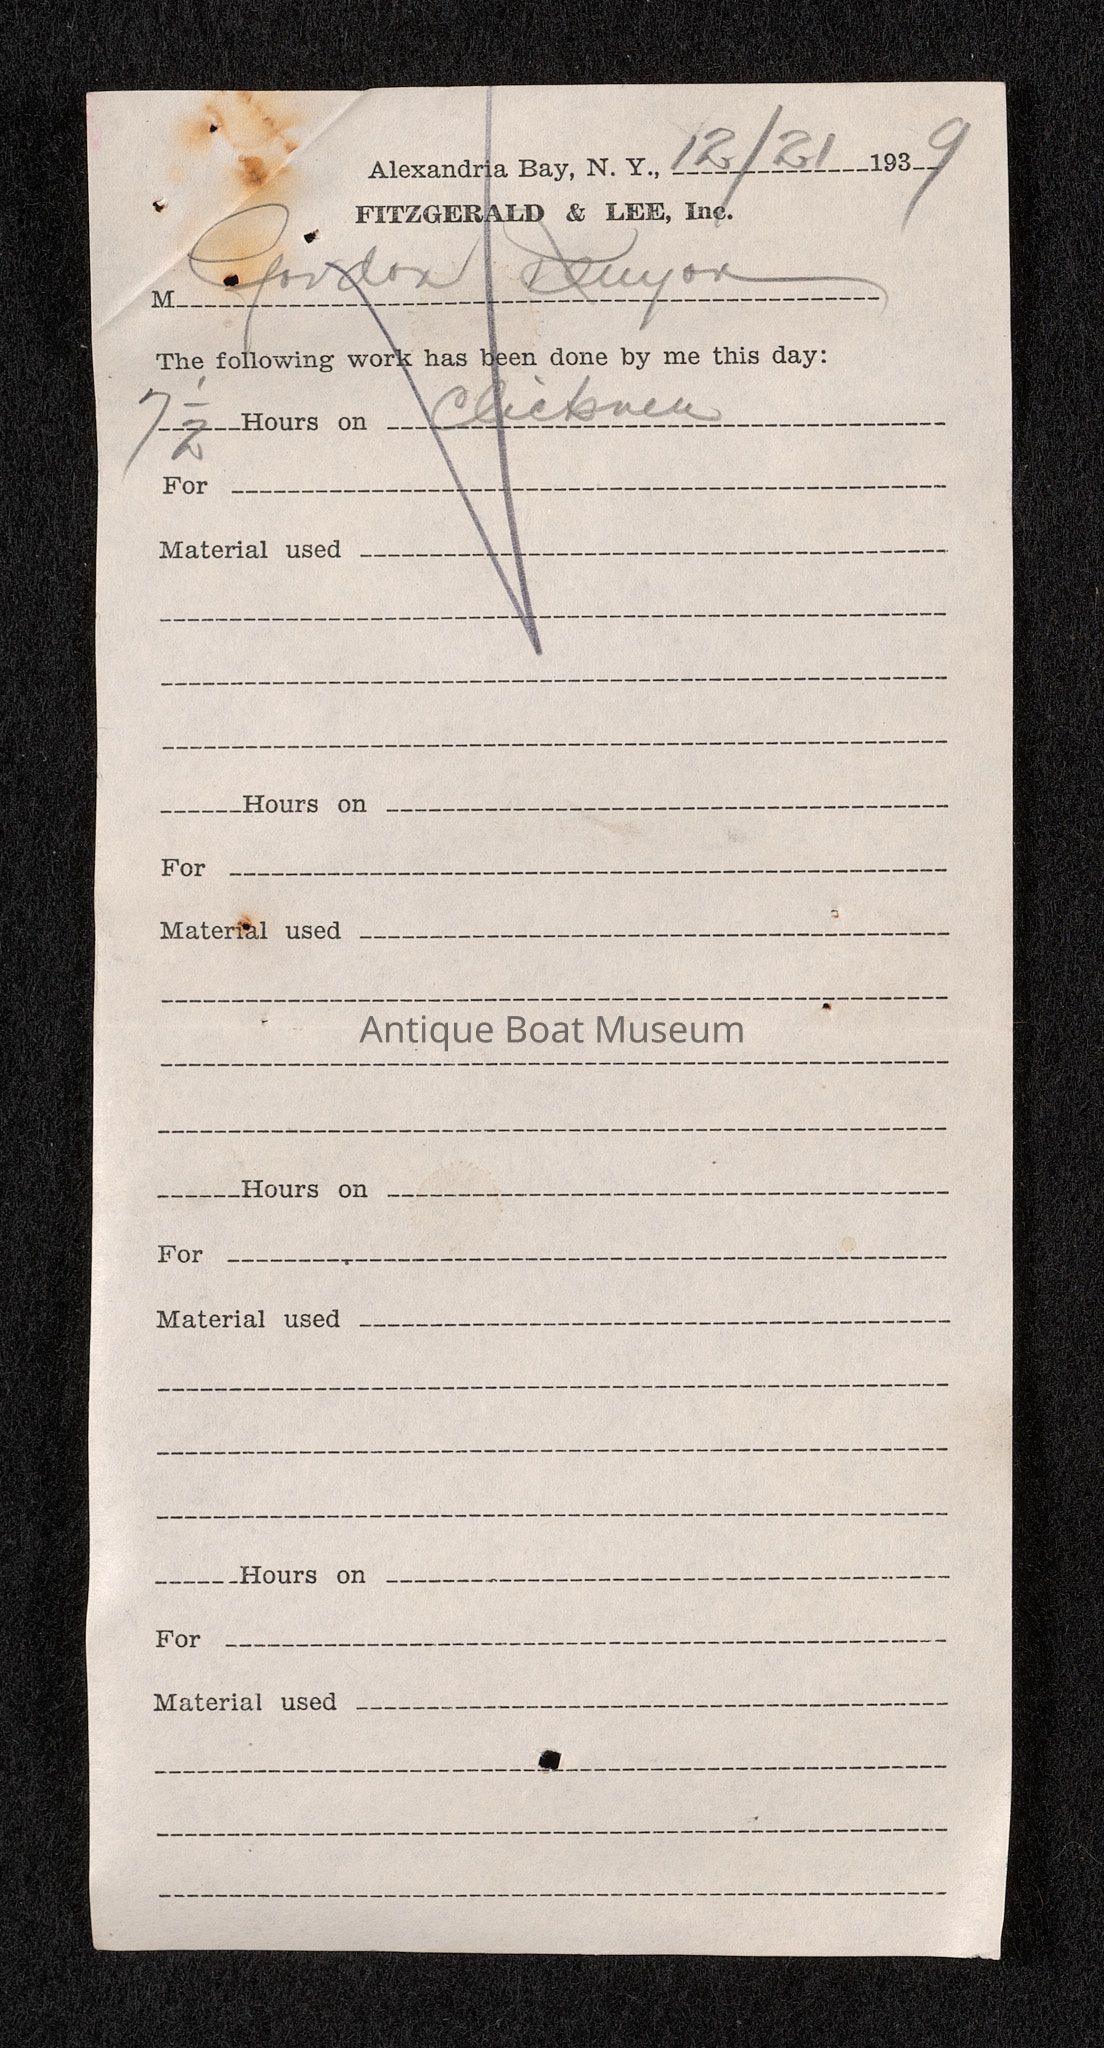 Alexandria Bay, N. Y., 12/21 1939
FITZGERALD & LEE, Inc.
M Gordon
The following work has been done by me this day:
7 1/2 Hours on
For
Material used
Hours on
For
Material used
Antique Boat Museum
Hours on
For
Material used
Hours on
For
Material used